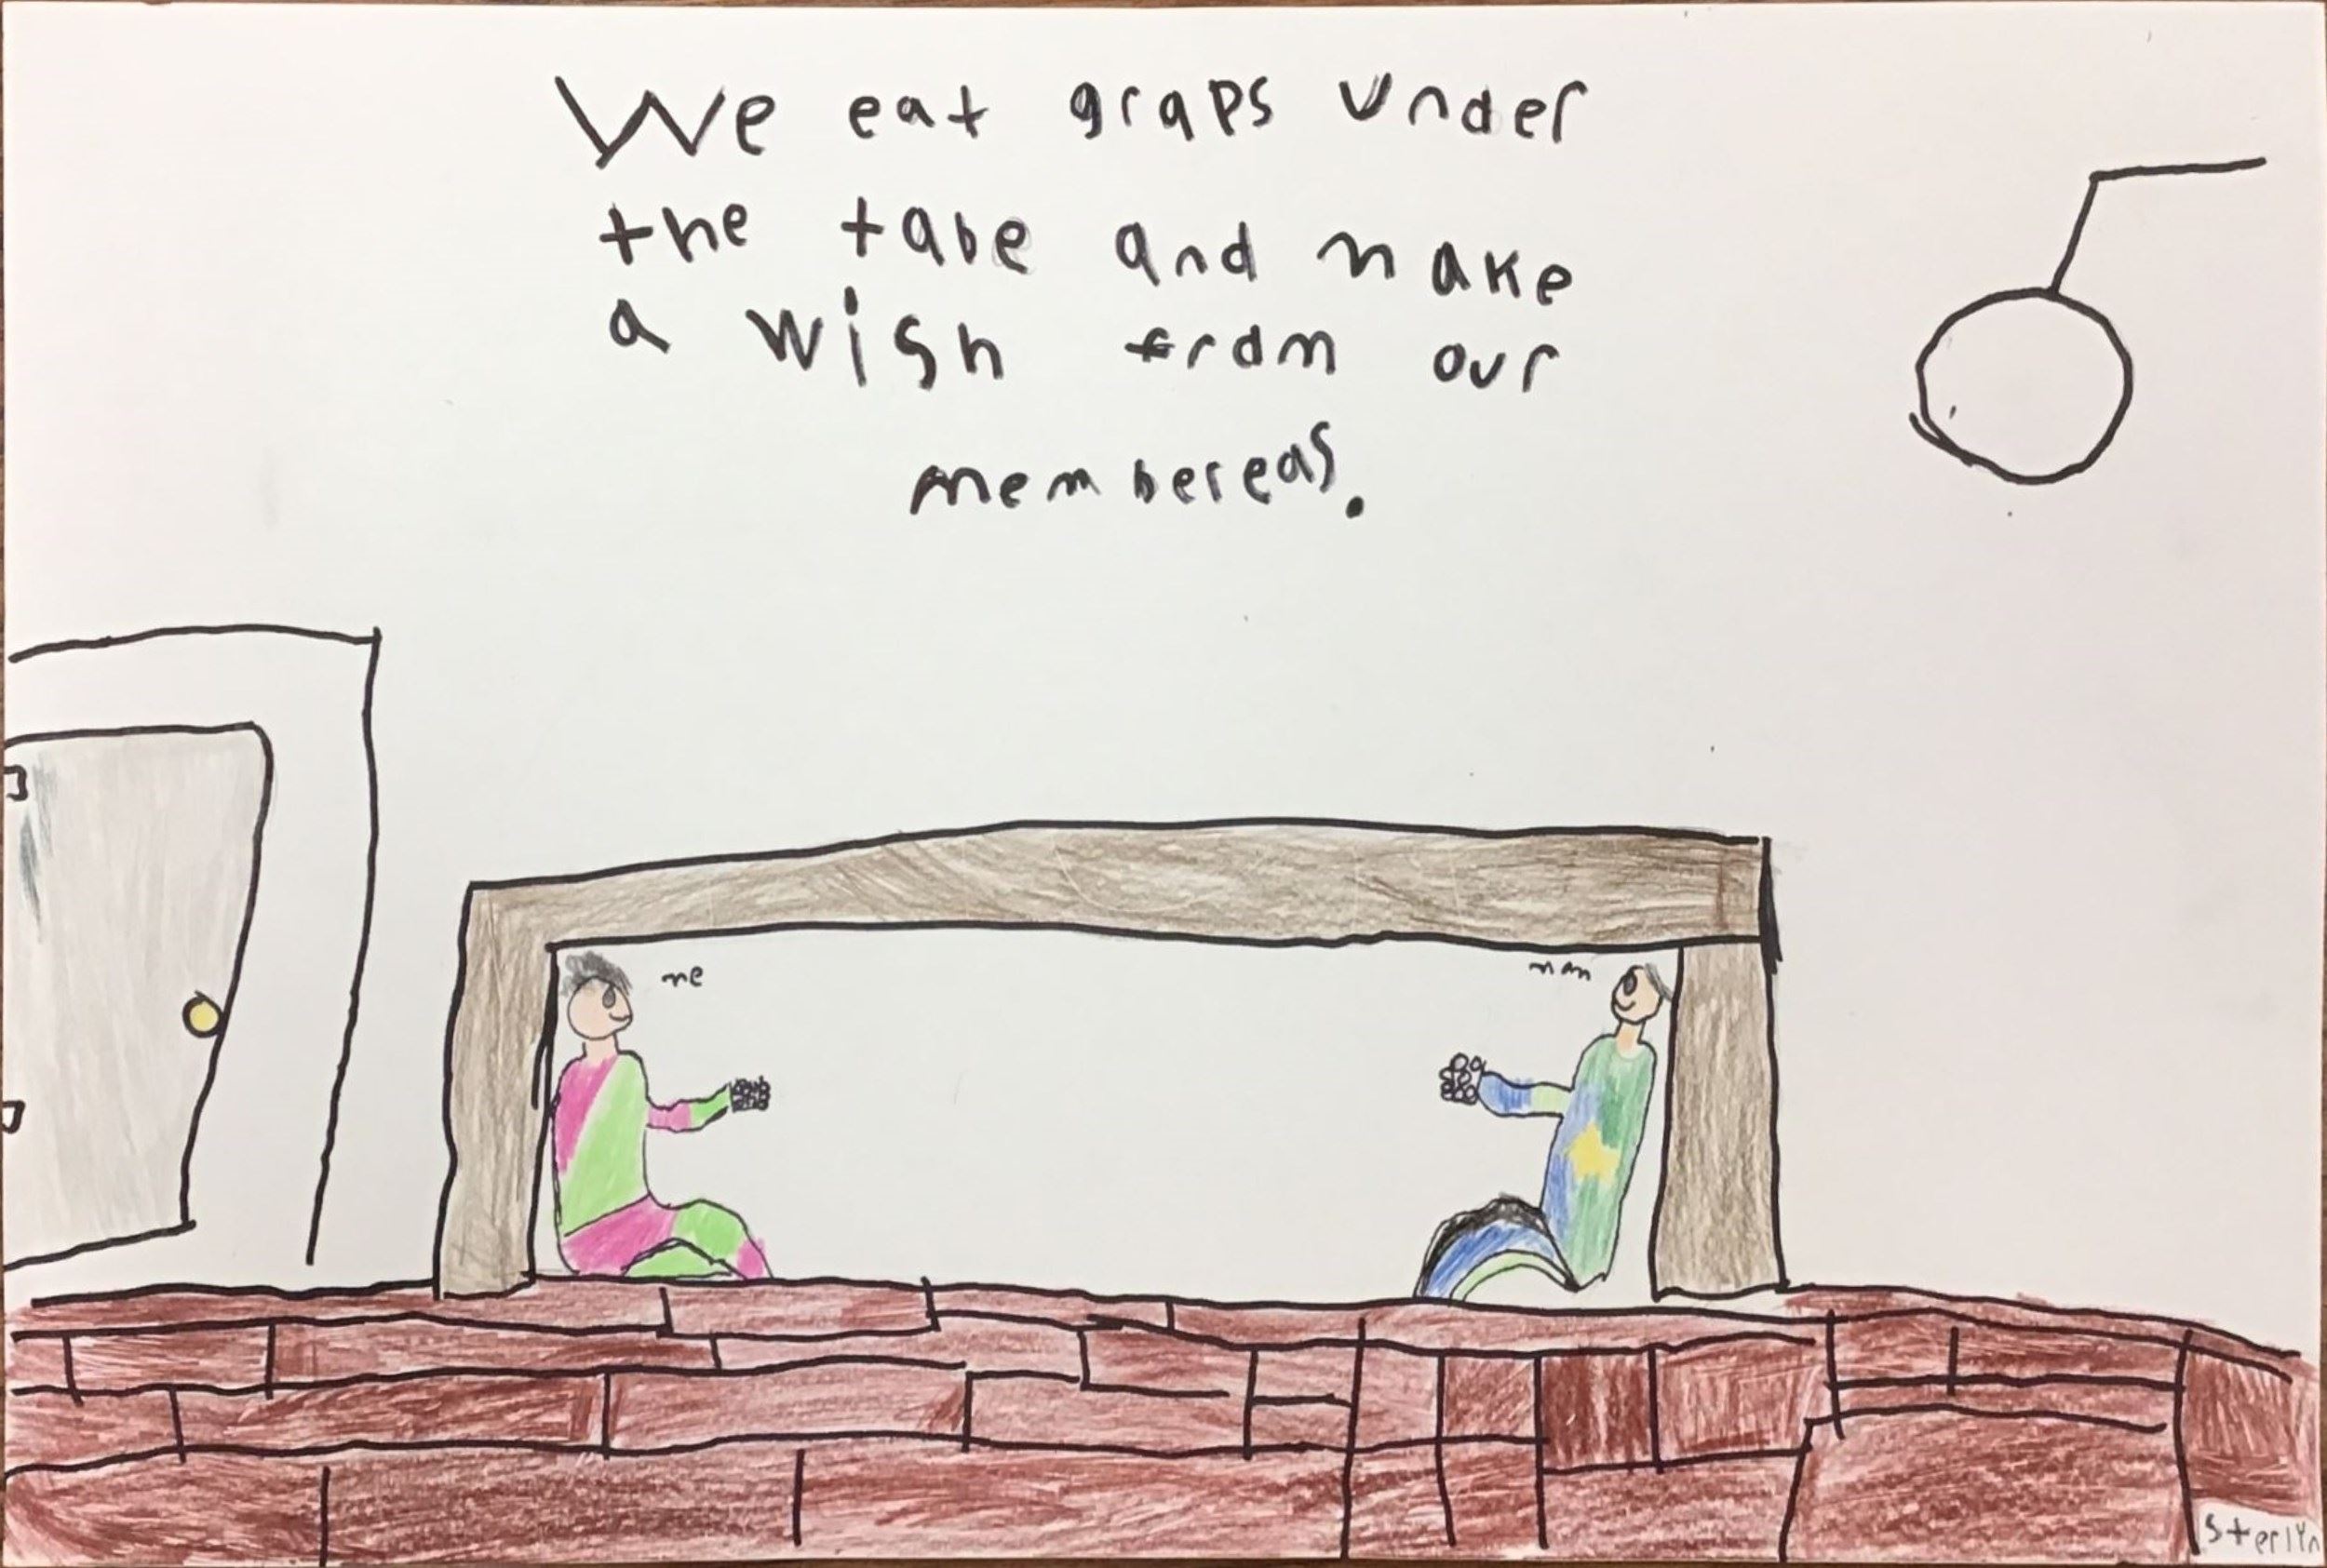 We eat graps under
the tabe and make
a wish from our
membereas.
me
mom
Sterlyn